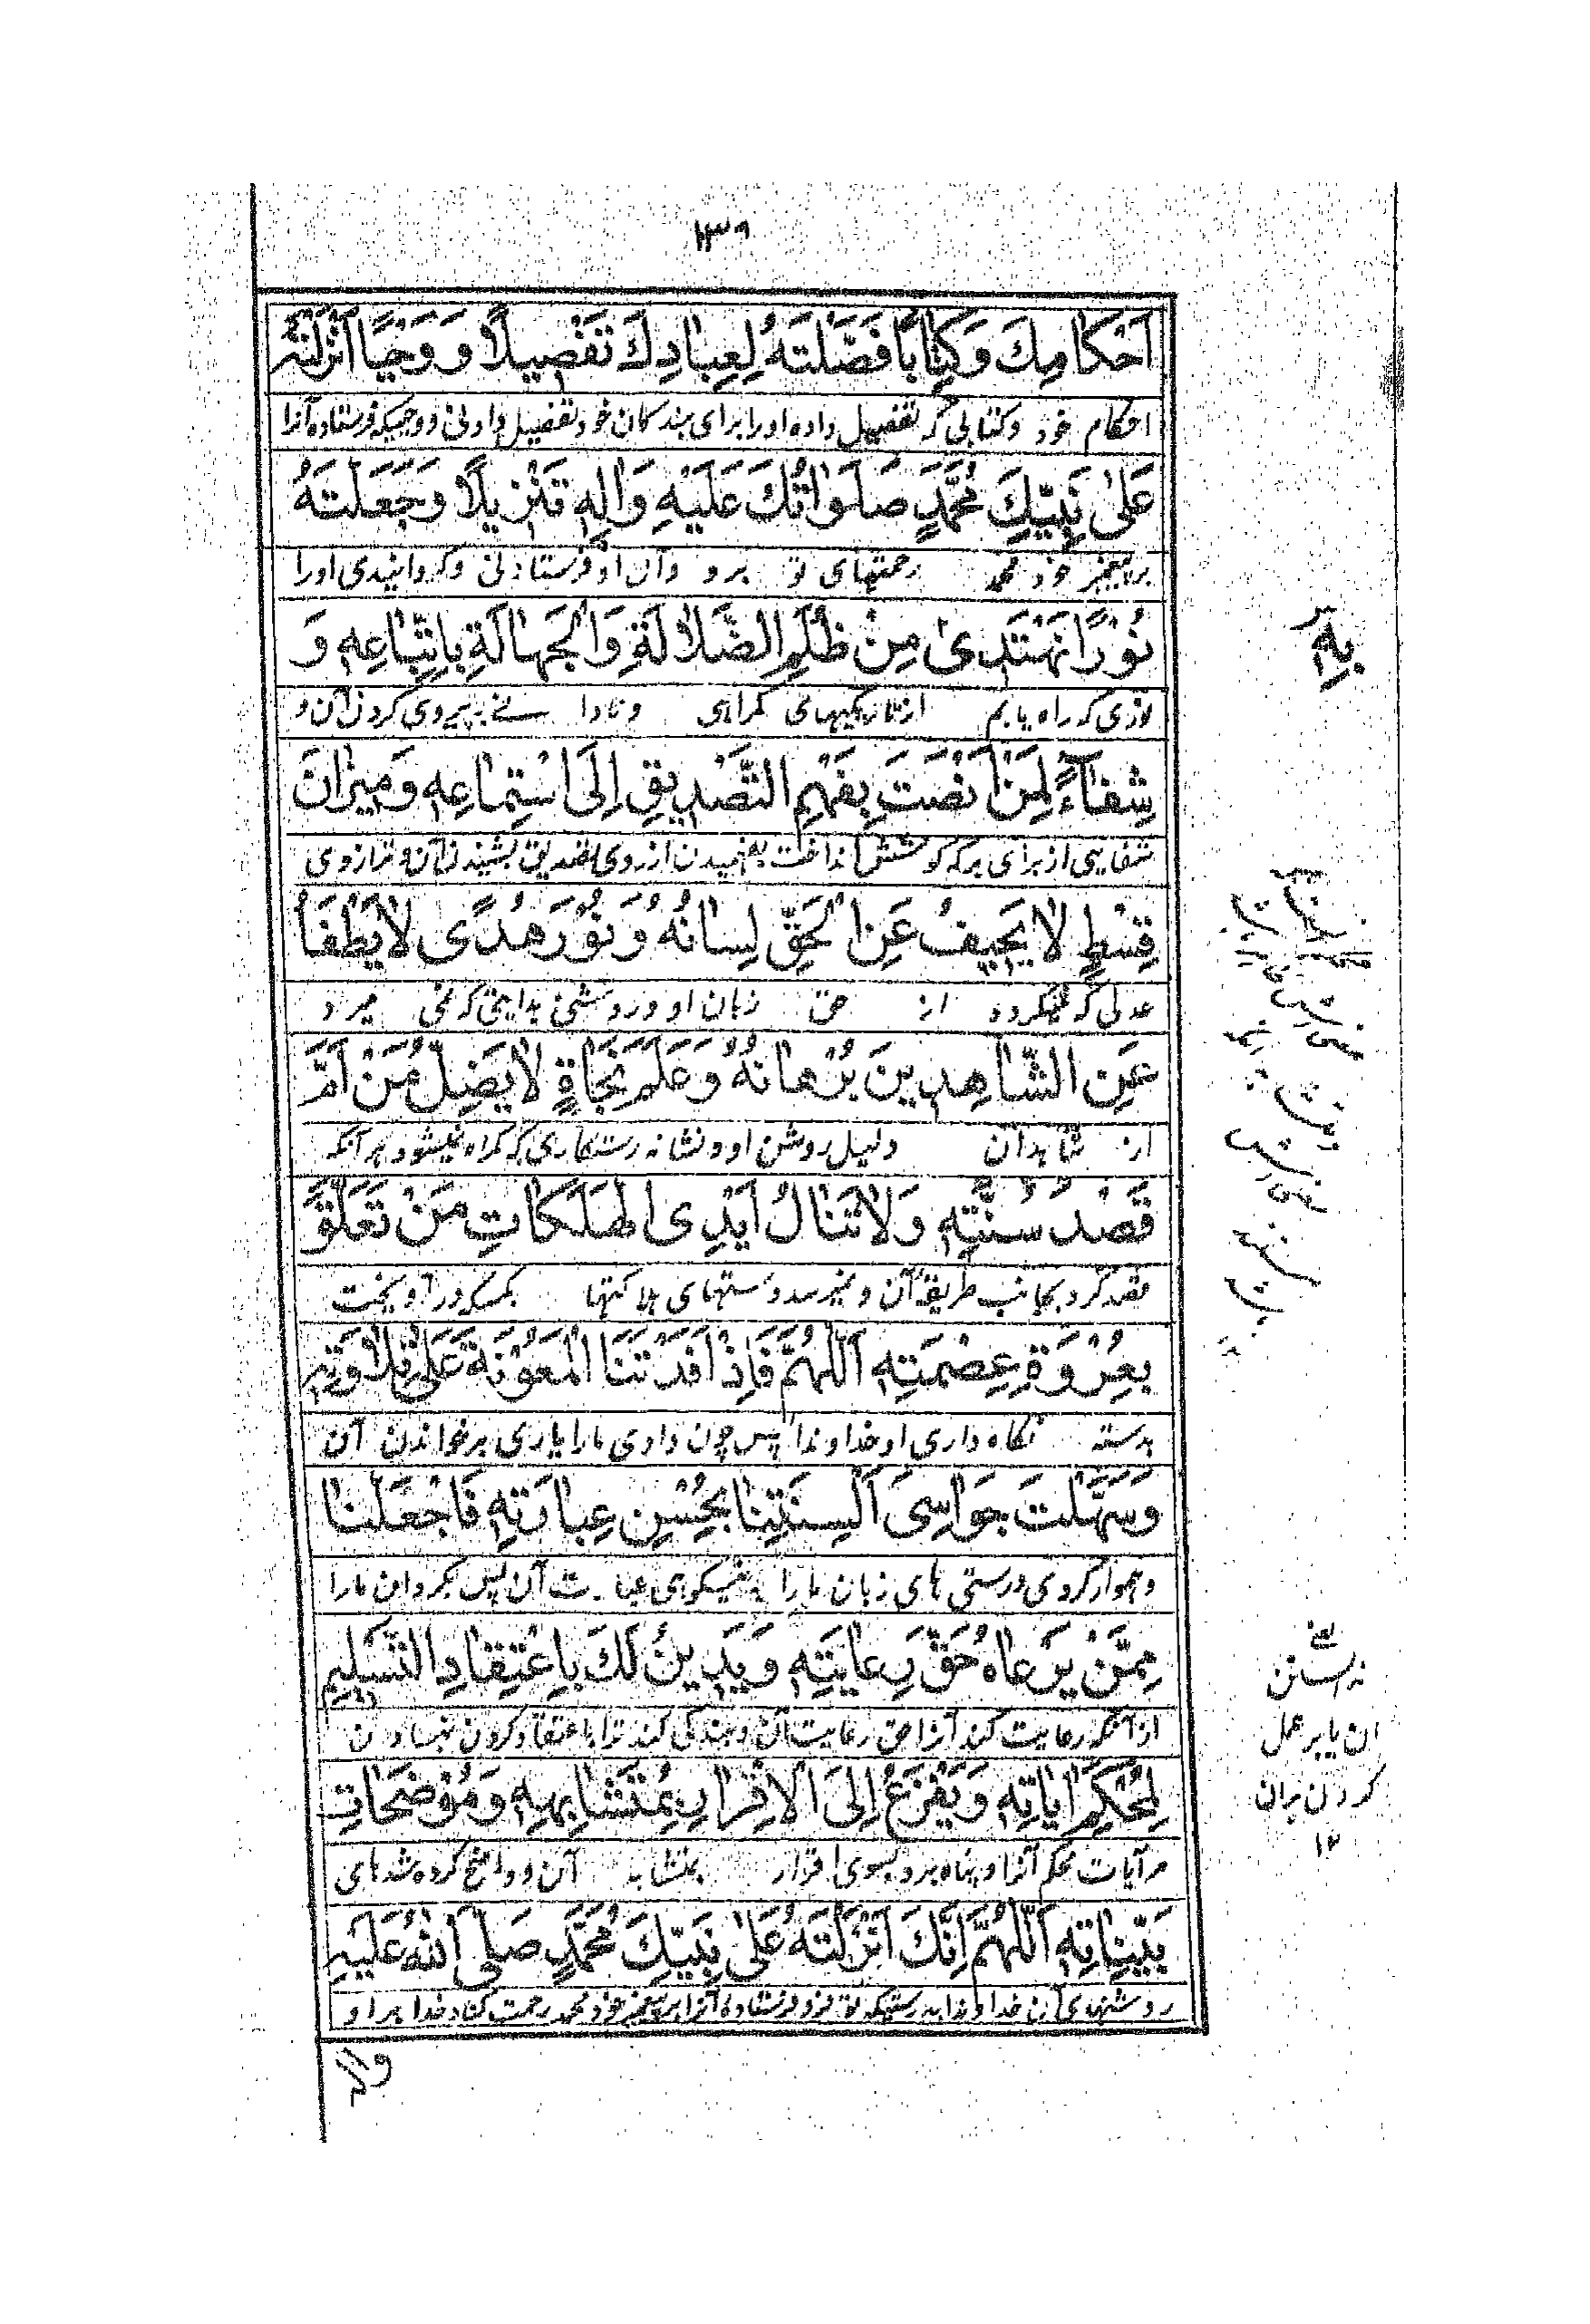 ۱۳۶
اَحْكَامِكَ وَكِتَابًا فَصَّلْتَهُ لِعِبَادِكَ تَفْصِيلًا وَ وَحْيًا اَنْزَلْتَهُ
احکام خود و کتابی که تفصیل داده او را برای بندگان خود تفصیل دادنی و وحیکه فرستاده آنرا
عَلىٰ نَبِيِّكَ مُحَمَّدٍ صَلَوَاتُكَ عَلَيْهِ وَالِهِ تَنْزِيلًا وَجَعَلْتَهُ
بر پیغمبر خود محمد رحمتهای تو برو وآل او فرستادنی و گردانیدی اورا
نُوْرًا نَهْتَدِىْ مِنْ ظُلَمِ الضَّلَالَةِ وَالْجَهَالَةِ بِاتِّبَاعِهِ وَ
نوری که راه یابم از تاریکیهای گمراهی و نادا نے به پیروی کردن آن و
شِفَآءً لِمَنْ اَنْصَتَ بِفَهْمِ التَّصْدِيْقِ اِلَى اسْتِمَاعِهِ وَمِيْزَانَ
شفایی از برای هر که گوش انداخت بفهمیدن از روی تصدیق بشنیدن آن و ترازوی
قِسْطٍ لَا يَحِيْفُ عَنِ الْحَقِّ لِسَانُهُ وَ نُوْرَ هُدًى لَا يَطْفَأُ
عدلی که نمیگردد از حق زبان او و روشنی هدایتی که نمی میرد
عَنِ الشَّاهِدِيْنَ بُرْهَانُهُ وَعَلَمَ نَجَاةٍ لَا يَضِلُّ مَنْ اَمَّ
از شاهدان دلیل روشن او و نشانه رستگاری که گمراه نمیشود هر آنکه
قَصْدَ سُنَّتِهِ وَلَا تَنَالُ اَيْدِى الْهَلَكَاتِ مَنْ تَعَلَّقَ
قصد کرد بجانب طریقهٔ آن و نمیرسد دستهای هلاکتها بکسیکه در آویخت
بِعُرْوَةِ عِصْمَتِهِ اَللّٰهُمَّ فَاِذْ اَفَدْتَنَا الْمَعُوْنَةَ عَلىٰ تِلَاوَتِهِ
بدسته نگاه داری او خداوندا پس چون دادی مارا یاری بر خواندن آن
وَسَهَّلْتَ جَوَاسِىَ اَلْسِنَتِنَا بِحُسْنِ عِبَارَتِهِ فَاجْعَلْنَا
و هموار کردی درستی های زبان مارا به نیکویی عبارت آن پس بگردان مارا
مِمَّنْ يَرْعَاهُ حَقَّ رِعَايَتِهِ وَيَدِيْنُ لَكَ بِاِعْتِقَادِ التَّسْلِيْمِ
از آنکه رعایت کند آنرا حق رعایت آن و بندگی کند ترا با عتقاد کردن نهادن
لِمُحْكَمِ اٰيَاتِهِ وَيَفْزَعُ اِلَى الْاِقْرَارِ بِمُتَشَابِهِهِ وَمُوْضَحَاتِ
مر آیات محکم آنرا و پناه برد بسوی اقرار بمتشابه آن و واضح کرده شدهای
بَيِّنَاتِهِ اَللّٰهُمَّ اِنَّكَ اَنْزَلْتَهُ عَلىٰ نَبِيِّكَ مُحَمَّدٍ صَلَّى اللّٰهُ عَلَيْهِ
روشنهای آن خداوندا بدرستیکه تو فرو فرستادهٔ آنرا بر پیغمبر خود محمد رحمت کناد خدا بر او
وآلہ
بِهِ
یعنے
ان یا بر عمل
کردن بران
۱۲